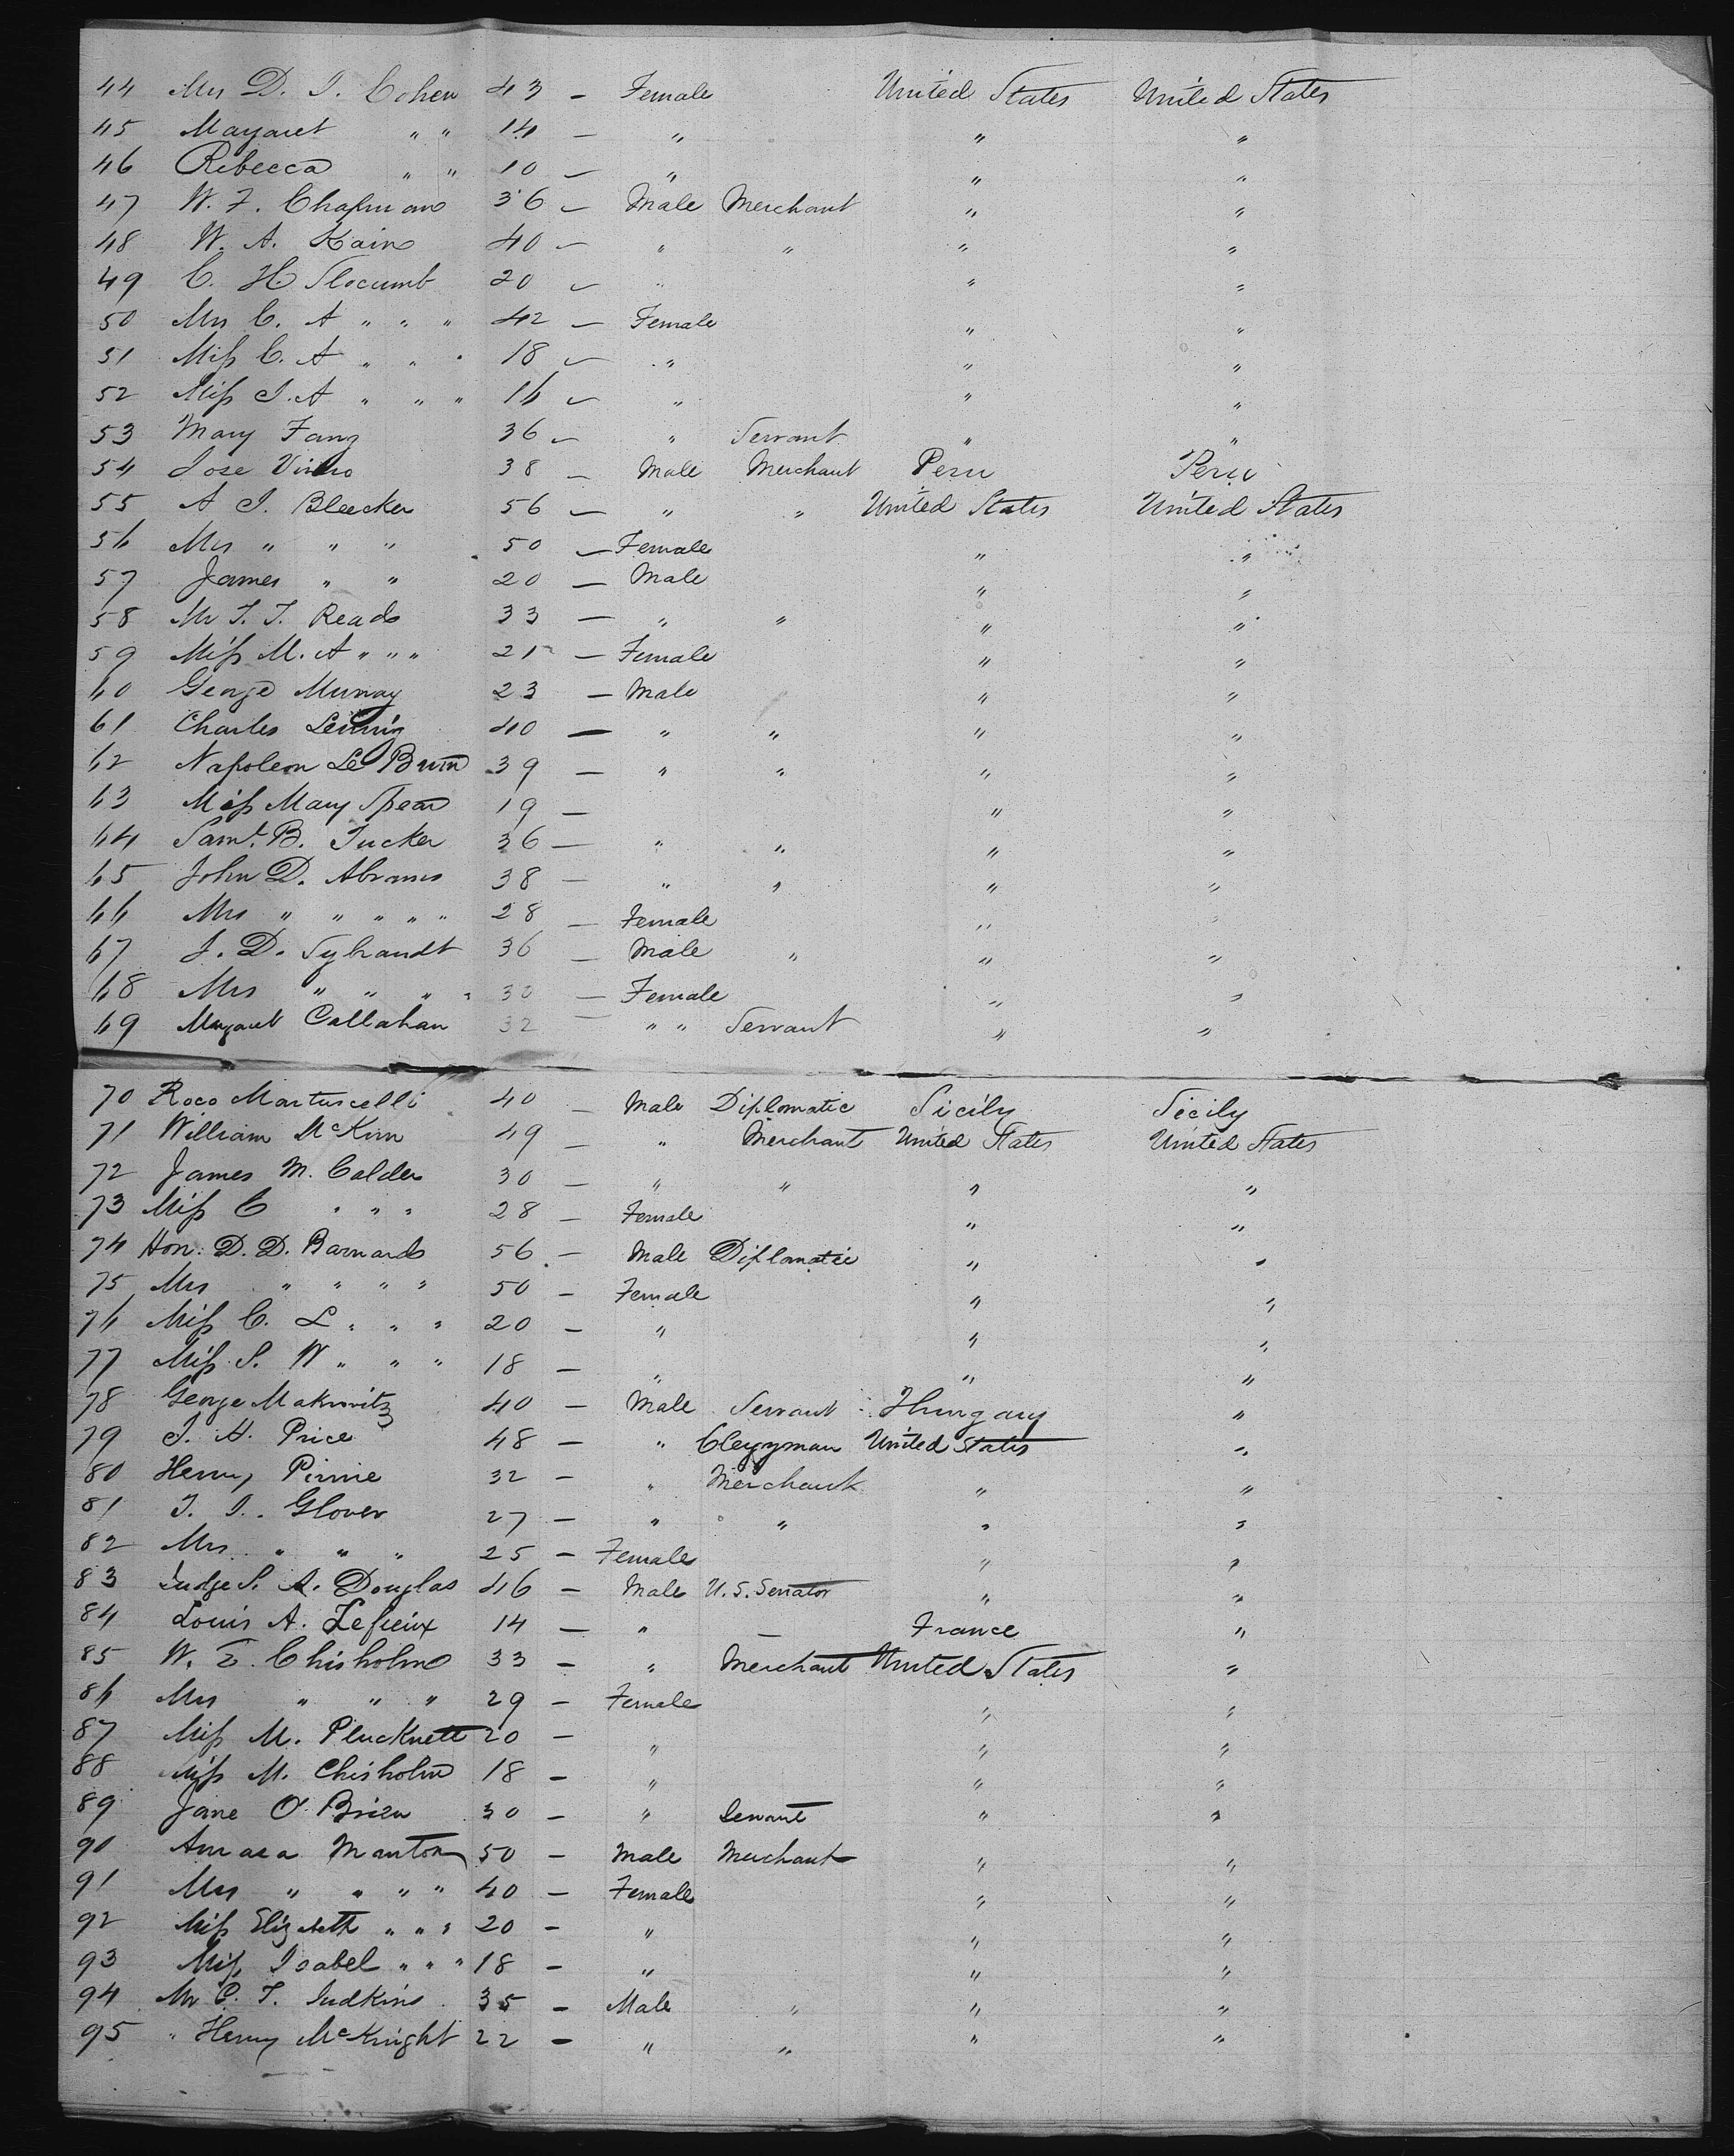 44 Mrs D. I. Cohen 43 – Female United States United States
45 Margaret " " 14 – " " "
46 Rebecca " " 10 – " " "
47 W. F. Chapman 36 – Male Merchant " "
48 W. A. Kain 40 – " " " "
49 C. H. Slocumb 20 – " " "
50 Mrs C. A " " " 42 – Female " "
51 Miss C. A " " " 18 – " " "
52 Miss I. A " " " 16 – " " "
53 Mary Fang 36 – " Servant " "
54 Jose 38 – Male Merchant Peru Peru
55 A I. Bleecker 56 – " " United States United States
56 Mrs " " " 50 – Female " "
57 James " " 20 – Male " "
58 Mr T. T. Read 33 – " " " "
59 Miss M. A " " " 21 – Female " "
60 George Murray 23 – Male " "
61 Charles 40 – " " " "
62 Napoleon Le Brun 39 – " " " "
63 Miss Mary Spear 19 – " "
64 Saml. B. Tucker 36 – " " " "
65 John D. Abrams 38 – " " " "
66 Mrs " " " " " 28 – Female " "
67 J. D. Sybrandt 36 – Male " " "
68 Mrs " " " " 30 – Female " "
69 Margaret Callahan 32 – " " Servant " "
70 Roco Martuscelli 40 – Male Diplomatic Sicily Sicily
71 William McKim 49 – " Merchant United States United States
72 James M. Calder 30 – " " " "
73 Miss C " " " 28 – Female " "
74 Hon. D. D. Barnard 56 – Male Diplomatic " "
75 Mrs " " " " 50 – Female " "
76 Miss C. L " " " 20 – " " "
77 Miss S. W " " " 18 – " " "
78 George 40 – Male Servant Hungary "
79 I. H. Price 48 – " Clergyman United States "
80 Henry Pirnie 32 – " Merchant " "
81 T. I. Glover 27 – " " " "
82 Mrs " " " 25 – Female " "
83 Judge S. A. Douglas 46 – Male U.S. Senator " "
84 Louis A. 14 – " – France "
85 W. E. Chisholm 33 – " Merchant United States "
86 Mrs " " " 29 – Female " "
87 Miss M. Plucknett 20 – " " "
88 Miss M. Chisholm 18 – " " "
89 Jane O'Brien 30 – " Servant " "
90 Amasa Manton 50 – Male Merchant " "
91 Mrs " " " " 40 – Female " "
92 Miss Elizabeth " " " 20 – " " "
93 Miss Isabel " " " 18 – " " "
94 Mr C. T. Judkins 35 – Male " " "
95 " Henry McKnight 22 – " " " "